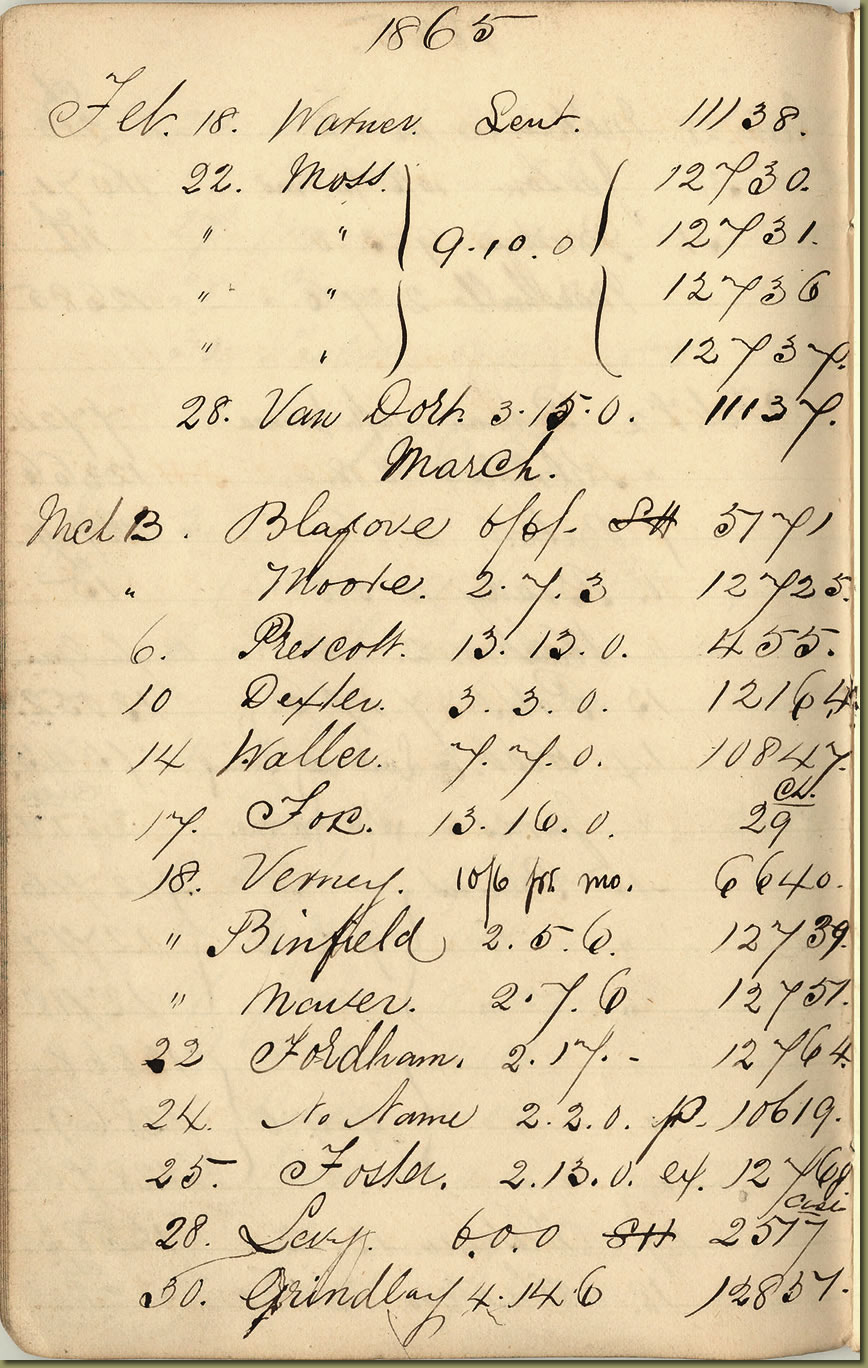 1865
Feb. 18. Warner. Lent. 11138.
22. Moss. 12730.
" " 9.10.0 12731.
" " 12736
" " 12737.
28. Van Dort. 3.15.0. 11137.
March.
Mch 13. Blagove 6/6/- SH 5171
" Moore. 2.7.3 12725.
6. Prescott. 13.13.0. 455.
10 Dexter. 3.3.0. 12164.
14 Waller. 7.7.0. 10847.
17. Fox. 13.16.0. 29
18. Verney. 10/6 pr mo. 6640.
" Binfield 2.5.6. 12739.
" 2.7.6 12751.
22 Fordham. 2.17.- 12764.
24. No Name 2.2.0. p. 10619.
25. Foster. 2.13.0. ex.
28. Levy. 6.0.0 SH 2517
30. Grindlay 4.14.6 12857.